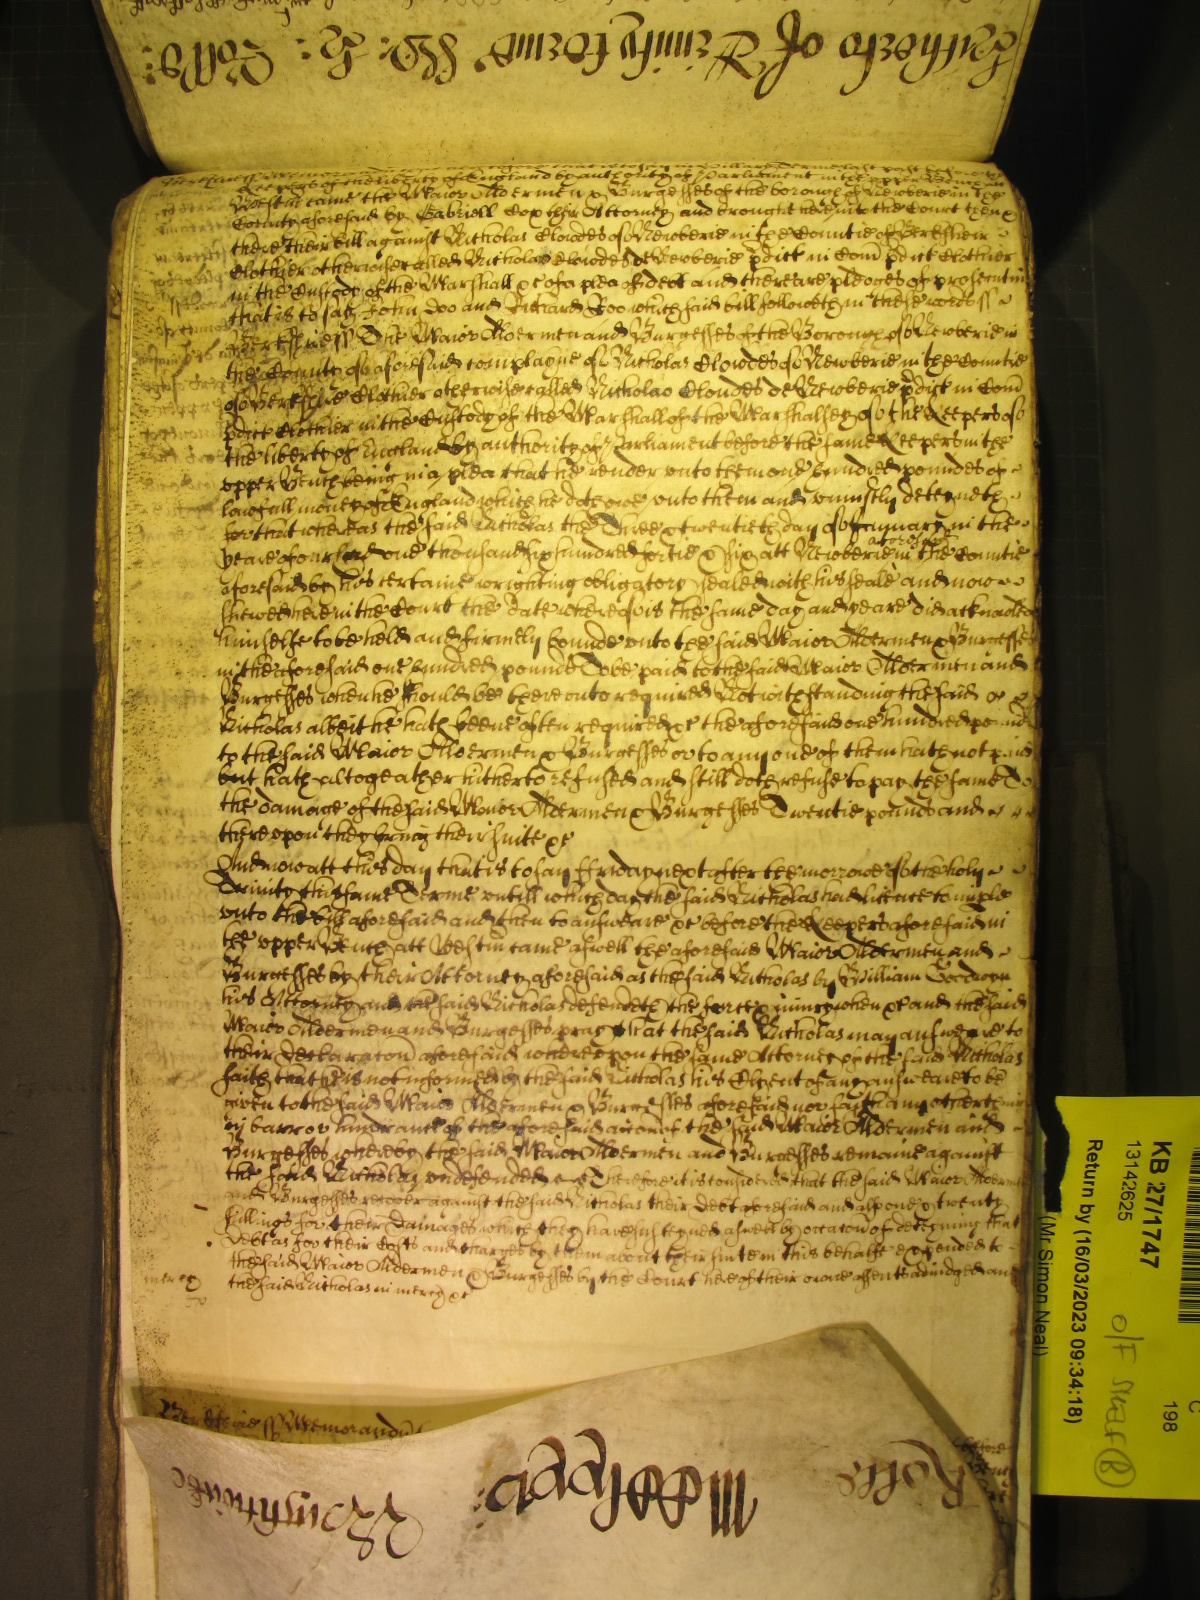 of Trinity terme
the liberty of England by authority of Parliament in the upper
Westm came the Maior Aldermen & Burgesses of the borough of Newberie in the
County aforesaid by Gabriell Cox their Attorney and brought here into the Court then &
there their bill against Nicholas Clowdes of Newberie in the Countie of Berksheir
Clothier otherwise called Nicholas Clowdes de Newberie pdict in Com pdict Clothier
in the Custody of the Marshall &c of a plea of debt and there are pledges of prosecution
that is to say John Doo and Richard Roo which said bill followeth in these words ss
Berksheir ss The Maior Aldermen and Burgesses of the Borough of Newberie in
the County of aforesaid complayne of Nicholas Clowdes of Newberie in the Countie
of Berksheire Clothier otherwise called Nicholas Clowdes de Newberie pdict in Com
pdict Clothier in the Custody of the Marshall of the Marshalsey of the Keepers of
the liberty of England by authority of Parliament before the same Keepers in the
upper Bench being in a plea that he render unto them one hundred poundes of
lawfull money of England which he doth owe unto them and uniustly deteyneth
for that whereas the said Nicholas the Three & twentieth day of January in the
yeare of our Lord one thousand six hundred fortie & six att Newberie in the Countie
aforesaid
aforesaid by his certaine wrighting obligatory sealed with his seale and now
shewed here in the Court the date whereof is the same day and yeare did acknowledge
himselfe to be held and firmely bounde unto the said Maior Aldermen & Burgesses
in the aforesaid one hundred pounde To be paid to the said Maior Aldermen and
Burgesses when he should be thereunto required Notwithstanding the said
Nicholas albeit he hath beene often required &c the aforesaid one hundred pounde
to the said Maior Aldermen & Burgesses or to any one of them hath not paid
but hath altogeather hitherto refused and still doth refuse to pay the same To
the damage of the said Maior Aldermen & Burgesses Twentie pounds and
thereupon they bring their suite &c
And now att this day that is to say ffriday next after the morrow of the holy
Trinity this same Terme untill which day the said Nicholas had licence to imparle
unto the bill aforesaid and then to answeare &c before the Keepers aforesaid in
the upper Bench att Westm came aswell the aforesaid Maior Aldermen and
Burgesses by their Attorney aforesaid as the said Nicholas by William
his Attorney and the said Nicholas defendeth the force & iniury when &c and the said
Maior Aldermen and Burgesses pray that the said Nicholas may answeare to
their declaracon aforesaid whereupon the same Attorney of the said Nicholas
saith that he is not informed by the said Nicholas his Clyent of any answeare to be
given to the said Maior Aldermen & Burgesses aforesaid nor saith any other thing
in barr or of the aforesaid accon of the said Maior Aldermen and
Burgesses whereby the said Maior Aldermen and Burgesses remaine against
the said Nicholas undefended &c Therefore it is considered that the said Maior Aldermen
and Burgesses recover against the said Nicholas their debt aforesaid and alsoe twenty
shillings for their Damages which they have susteyned aswell by occacon of deteyning that
debt as for their Costs and charges by them about their suite in this behalfe expended to
the said Maior Aldermen & Burgesses by the Court here of their owne assents adiudged and
the said Nicholas in mercy &c
in mercy
Berksheire ss Memorandum
Rolls
KB 27/1747
13142625
Return by (16/03/2023 09:34:18)
(Mr Simon Neal)
C
198